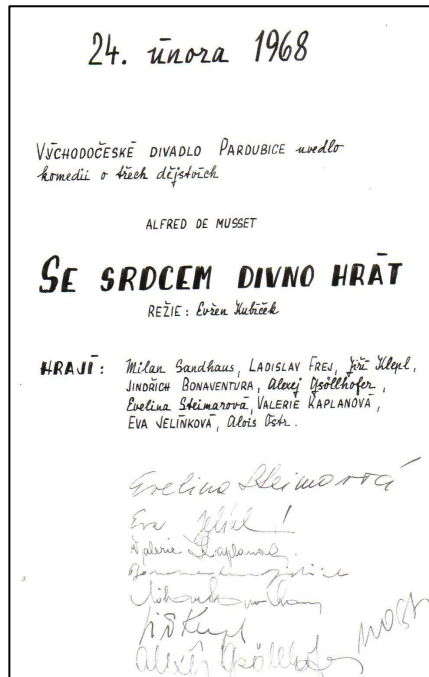 24. února 1968
VÝCHODOČESKÉ DIVADLO PARDUBICE uvedlo
komedii o třech dějstvích
ALFRED DE MUSSET
SE SRDCEM DIVNO HRÁT
REŽIE: Evžen Kubíček
HRAJÍ: Milan Sandhaus, LADISLAV FREJ, Jiří Klepl,
JINDŘICH BONAVENTURA, Alexej Gsöllhofer,
Evelina Steimarová, VALERIE KAPLANOVÁ,
EVA JELÍNKOVÁ, Alois Ostr.
Evelina Steimarová
Eva
Valerie Kaplanová.
Jiří Klepl
Alexej Gsöllhofer